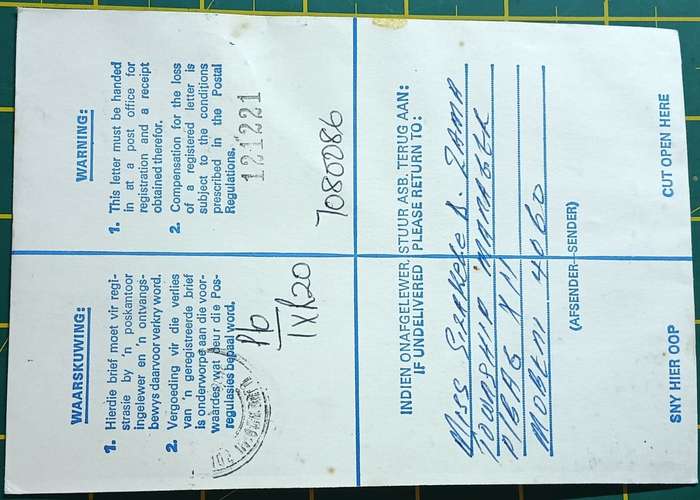 WAARSKUWING:
1. Hierdie brief moet vir regi-
strasie by 'n poskantoor
ingelewer en 'n ontvangs-
bewys daarvoor verkry word.
2. Vergoeding vir die verlies
van 'n geregistreerde brief
is onderworpe aan die voor-
waardes wat deur die Pos-
regulasies bepaal word.
WARNING:
1. This letter must be handed
in at a post office for
registration and a receipt
obtained therefor.
2. Compensation for the loss
of a registered letter is
subject to the conditions
prescribed in the Postal
Regulations.
121221
7080286
INDIEN ONAFGELEWER, STUUR ASB. TERUG AAN:
IF UNDELIVERED PLEASE RETURN TO:
MISS D. ZAMA
TOWNSHIP MANAGER
P/BAG X11
MOBENI 4060
(AFSENDER—SENDER)
SNY HIER OOP
CUT OPEN HERE